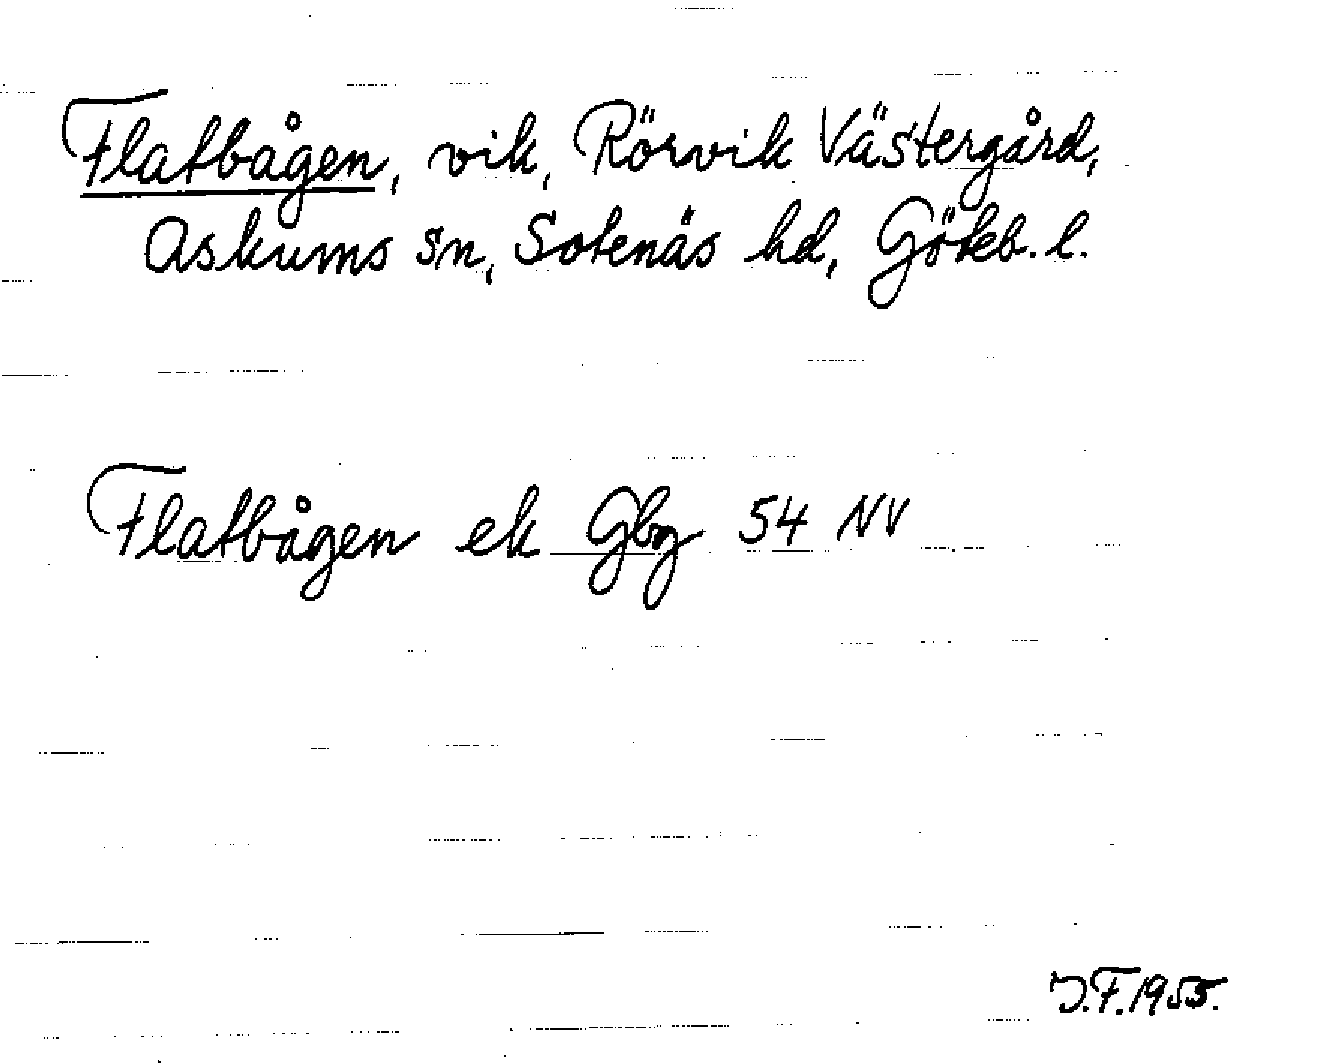 Flatbågen, vik, Rörvik Västergård,
Askums sn, Sotenäs hd, Göteb. l.
Flatbågen ek Gbg 54 NV
J.F. 1955.